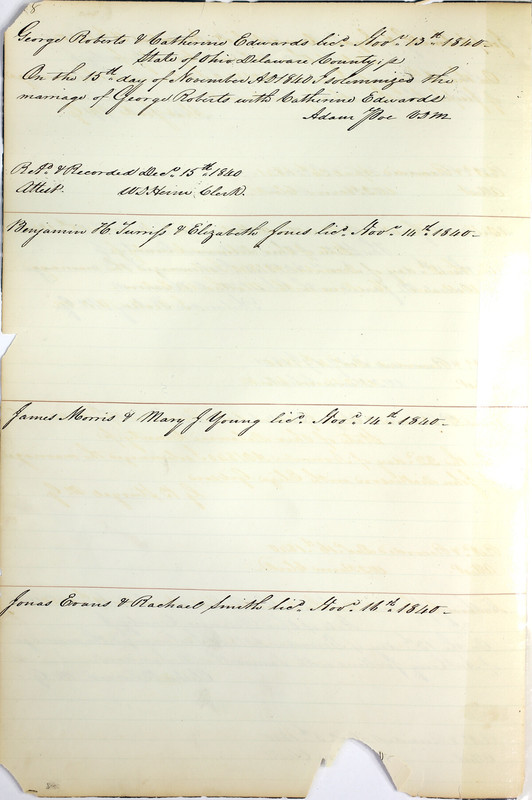 8
George Roberts & Catherine Edwards licd. Novr. 13th. 1840-
State of Ohio Delaware County ss
On the 15th. day of November AD 1840 I solemnized the
marriage of George Roberts with Catherine Edwards
Adam Poe VDM
Retd. & Recorded Decr. 15th. 1840
Attest. Clerk.
Benjamin H. & Elizabeth Jones licd. Novr. 14th. 1840-
James Morris & Mary J Young licd. Novr. 14th. 1840-
Jonas Evans & Rachael Smith licd. Novr. 16th. 1840-